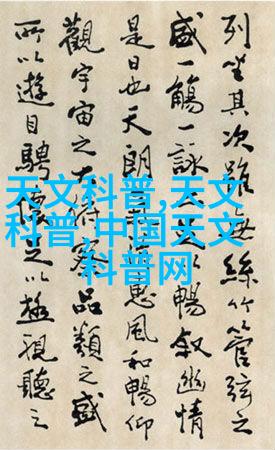 天文科普,天文
科普,中国天文
科普网
列坐其次雖無絲竹管弦之
盛一觴一詠足以暢叙幽情
是日也天朗惠風和暢仰
觀宇宙之大俯察品類之盛
所以遊目騁懷足以極視聽之